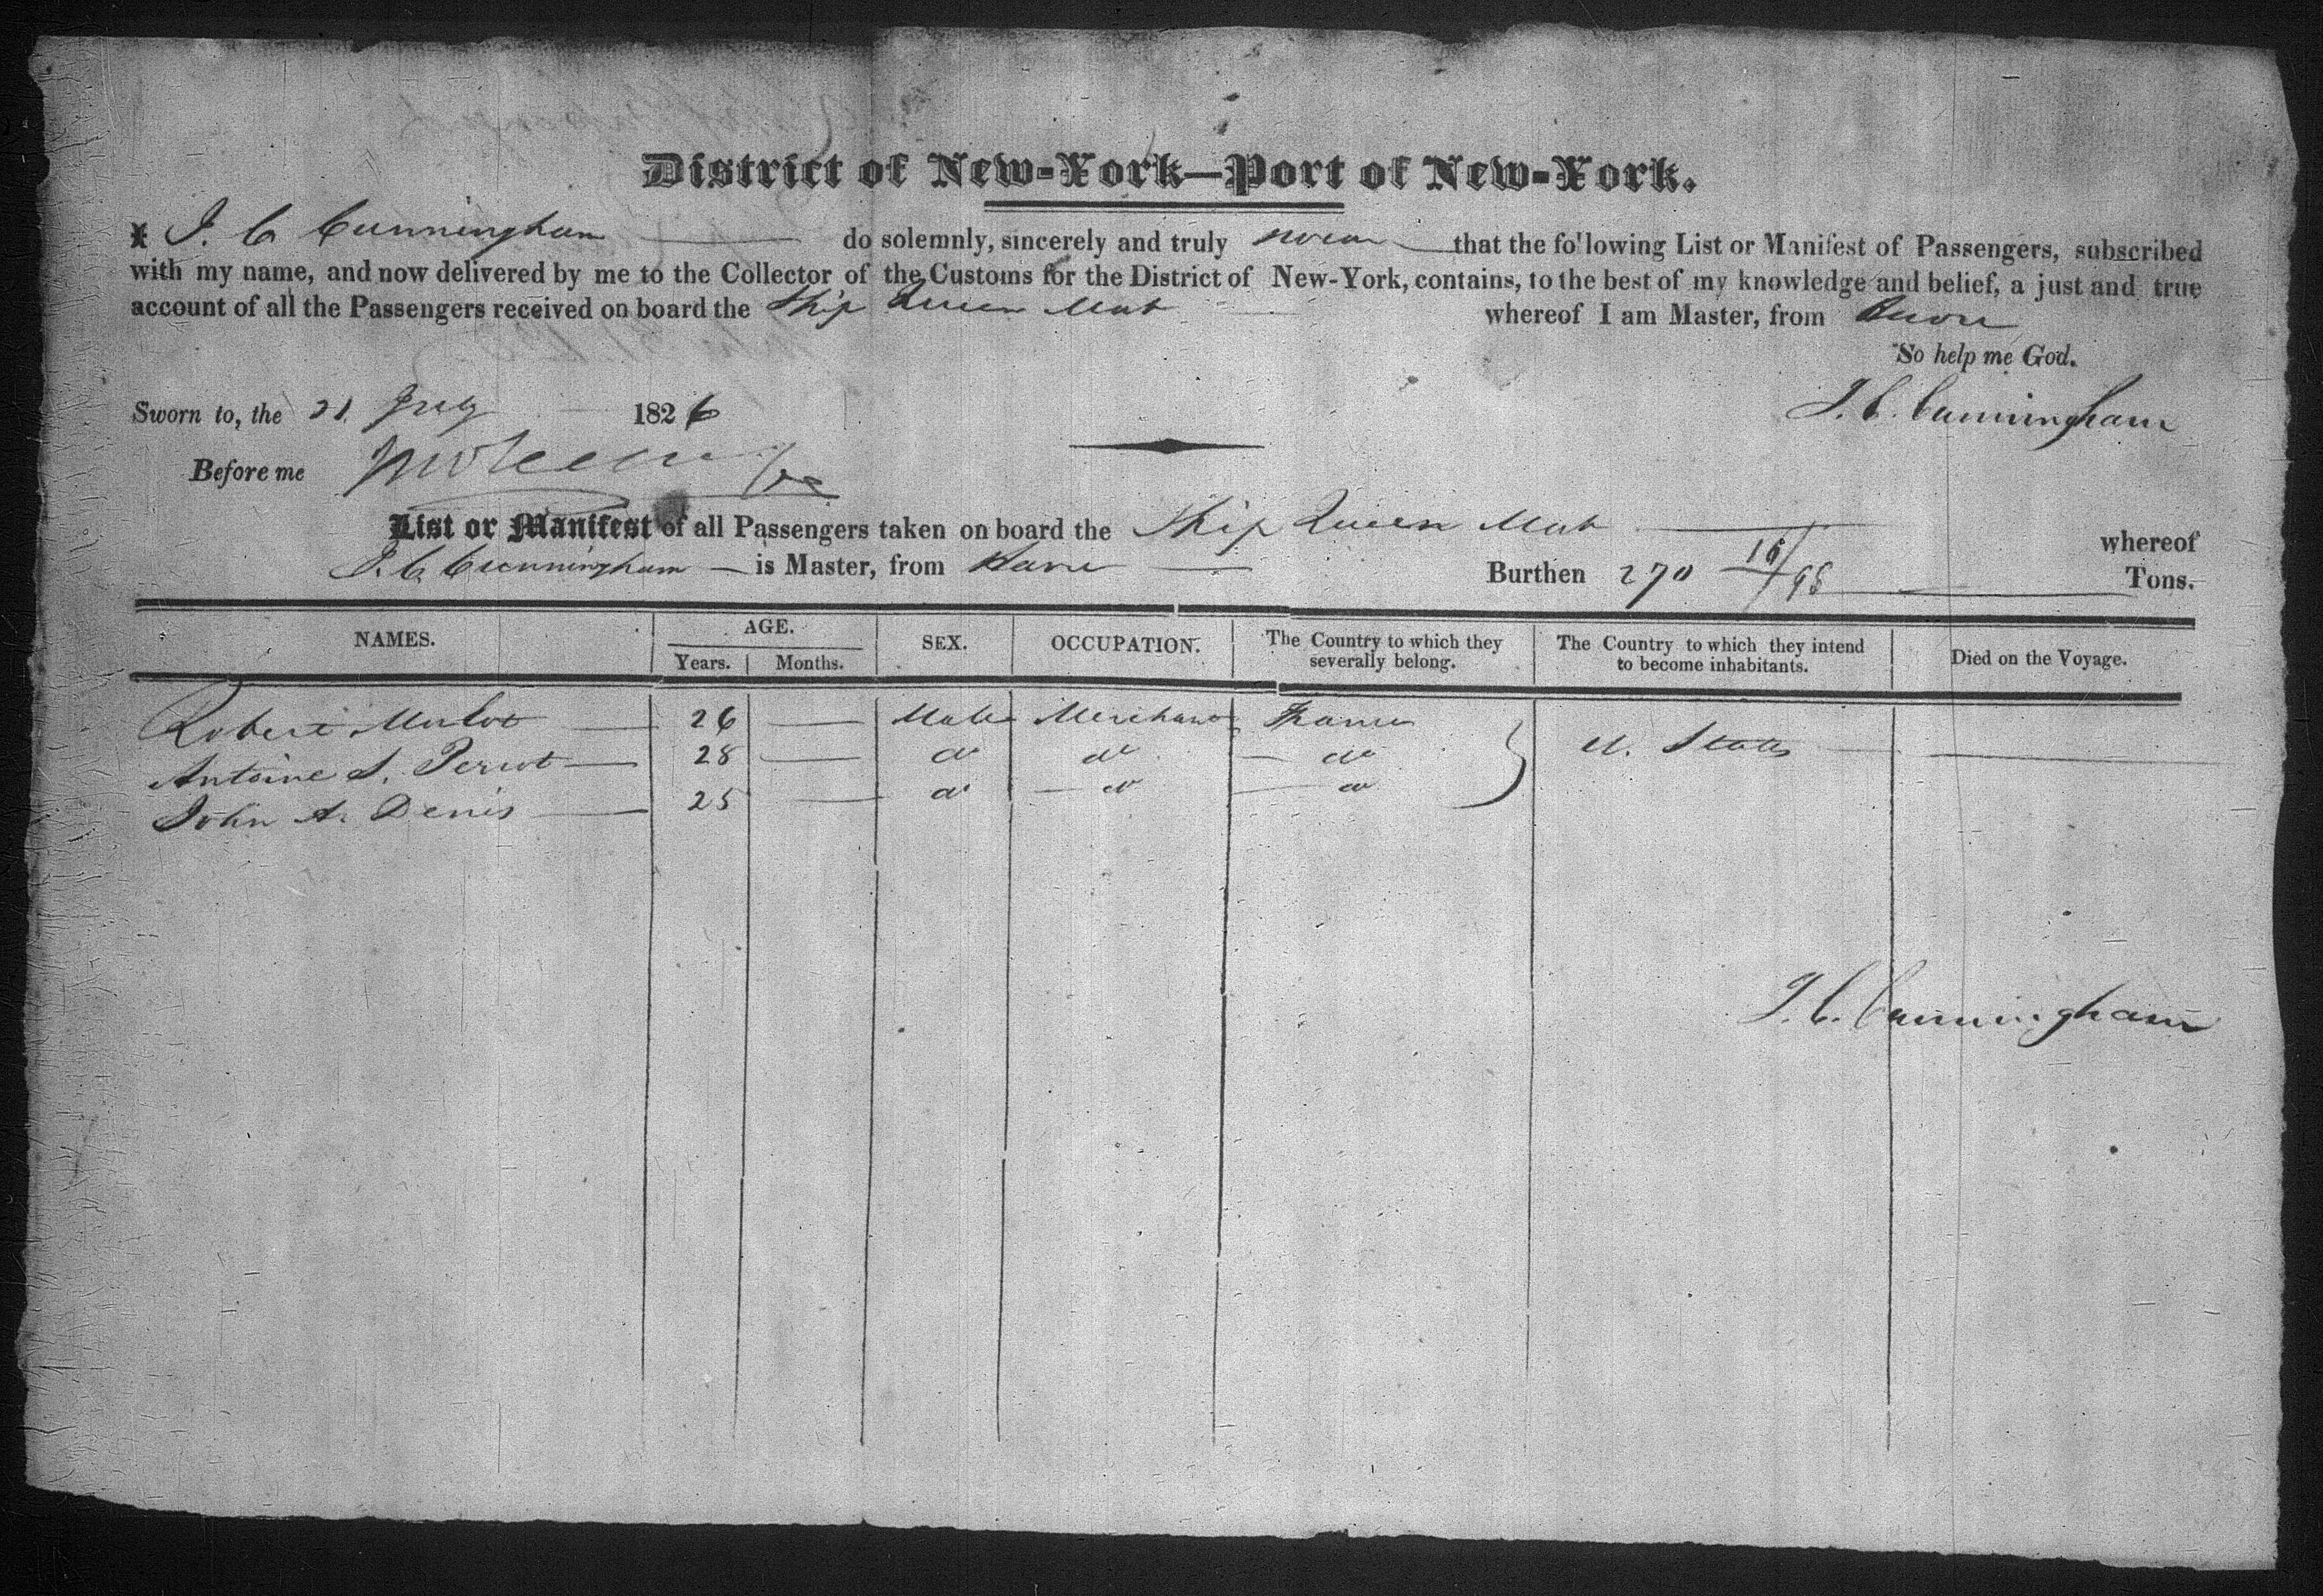 District of New-York—Port of New-York.
I J. C Cunningham do solemnly, sincerely and truly swear that the following List or Manifest of Passengers, subscribed
with my name, and now delivered by me to the Collector of the Customs for the District of New-York, contains, to the best of my knowledge and belief, a just and true
account of all the Passengers received on board the Ship Queen Mab whereof I am Master, from Havre
So help me God.
Sworn to, the 21 July 1826 J. C. Cunningham
Before me
List or Manifest of all Passengers taken on board the Ship Queen Mab whereof
J. C. Cunningham is Master, from Havre Burthen 270 16/95 Tons.
NAMES. AGE. SEX. OCCUPATION. The Country to which they severally belong. The Country to which they intend to become inhabitants. Died on the Voyage.
Years. Months.
Robert 26 Male Merchant France
Antoine S. Perrot 28 do do do U. States
John A. Denis 25 do do do
J. C. Cunningham